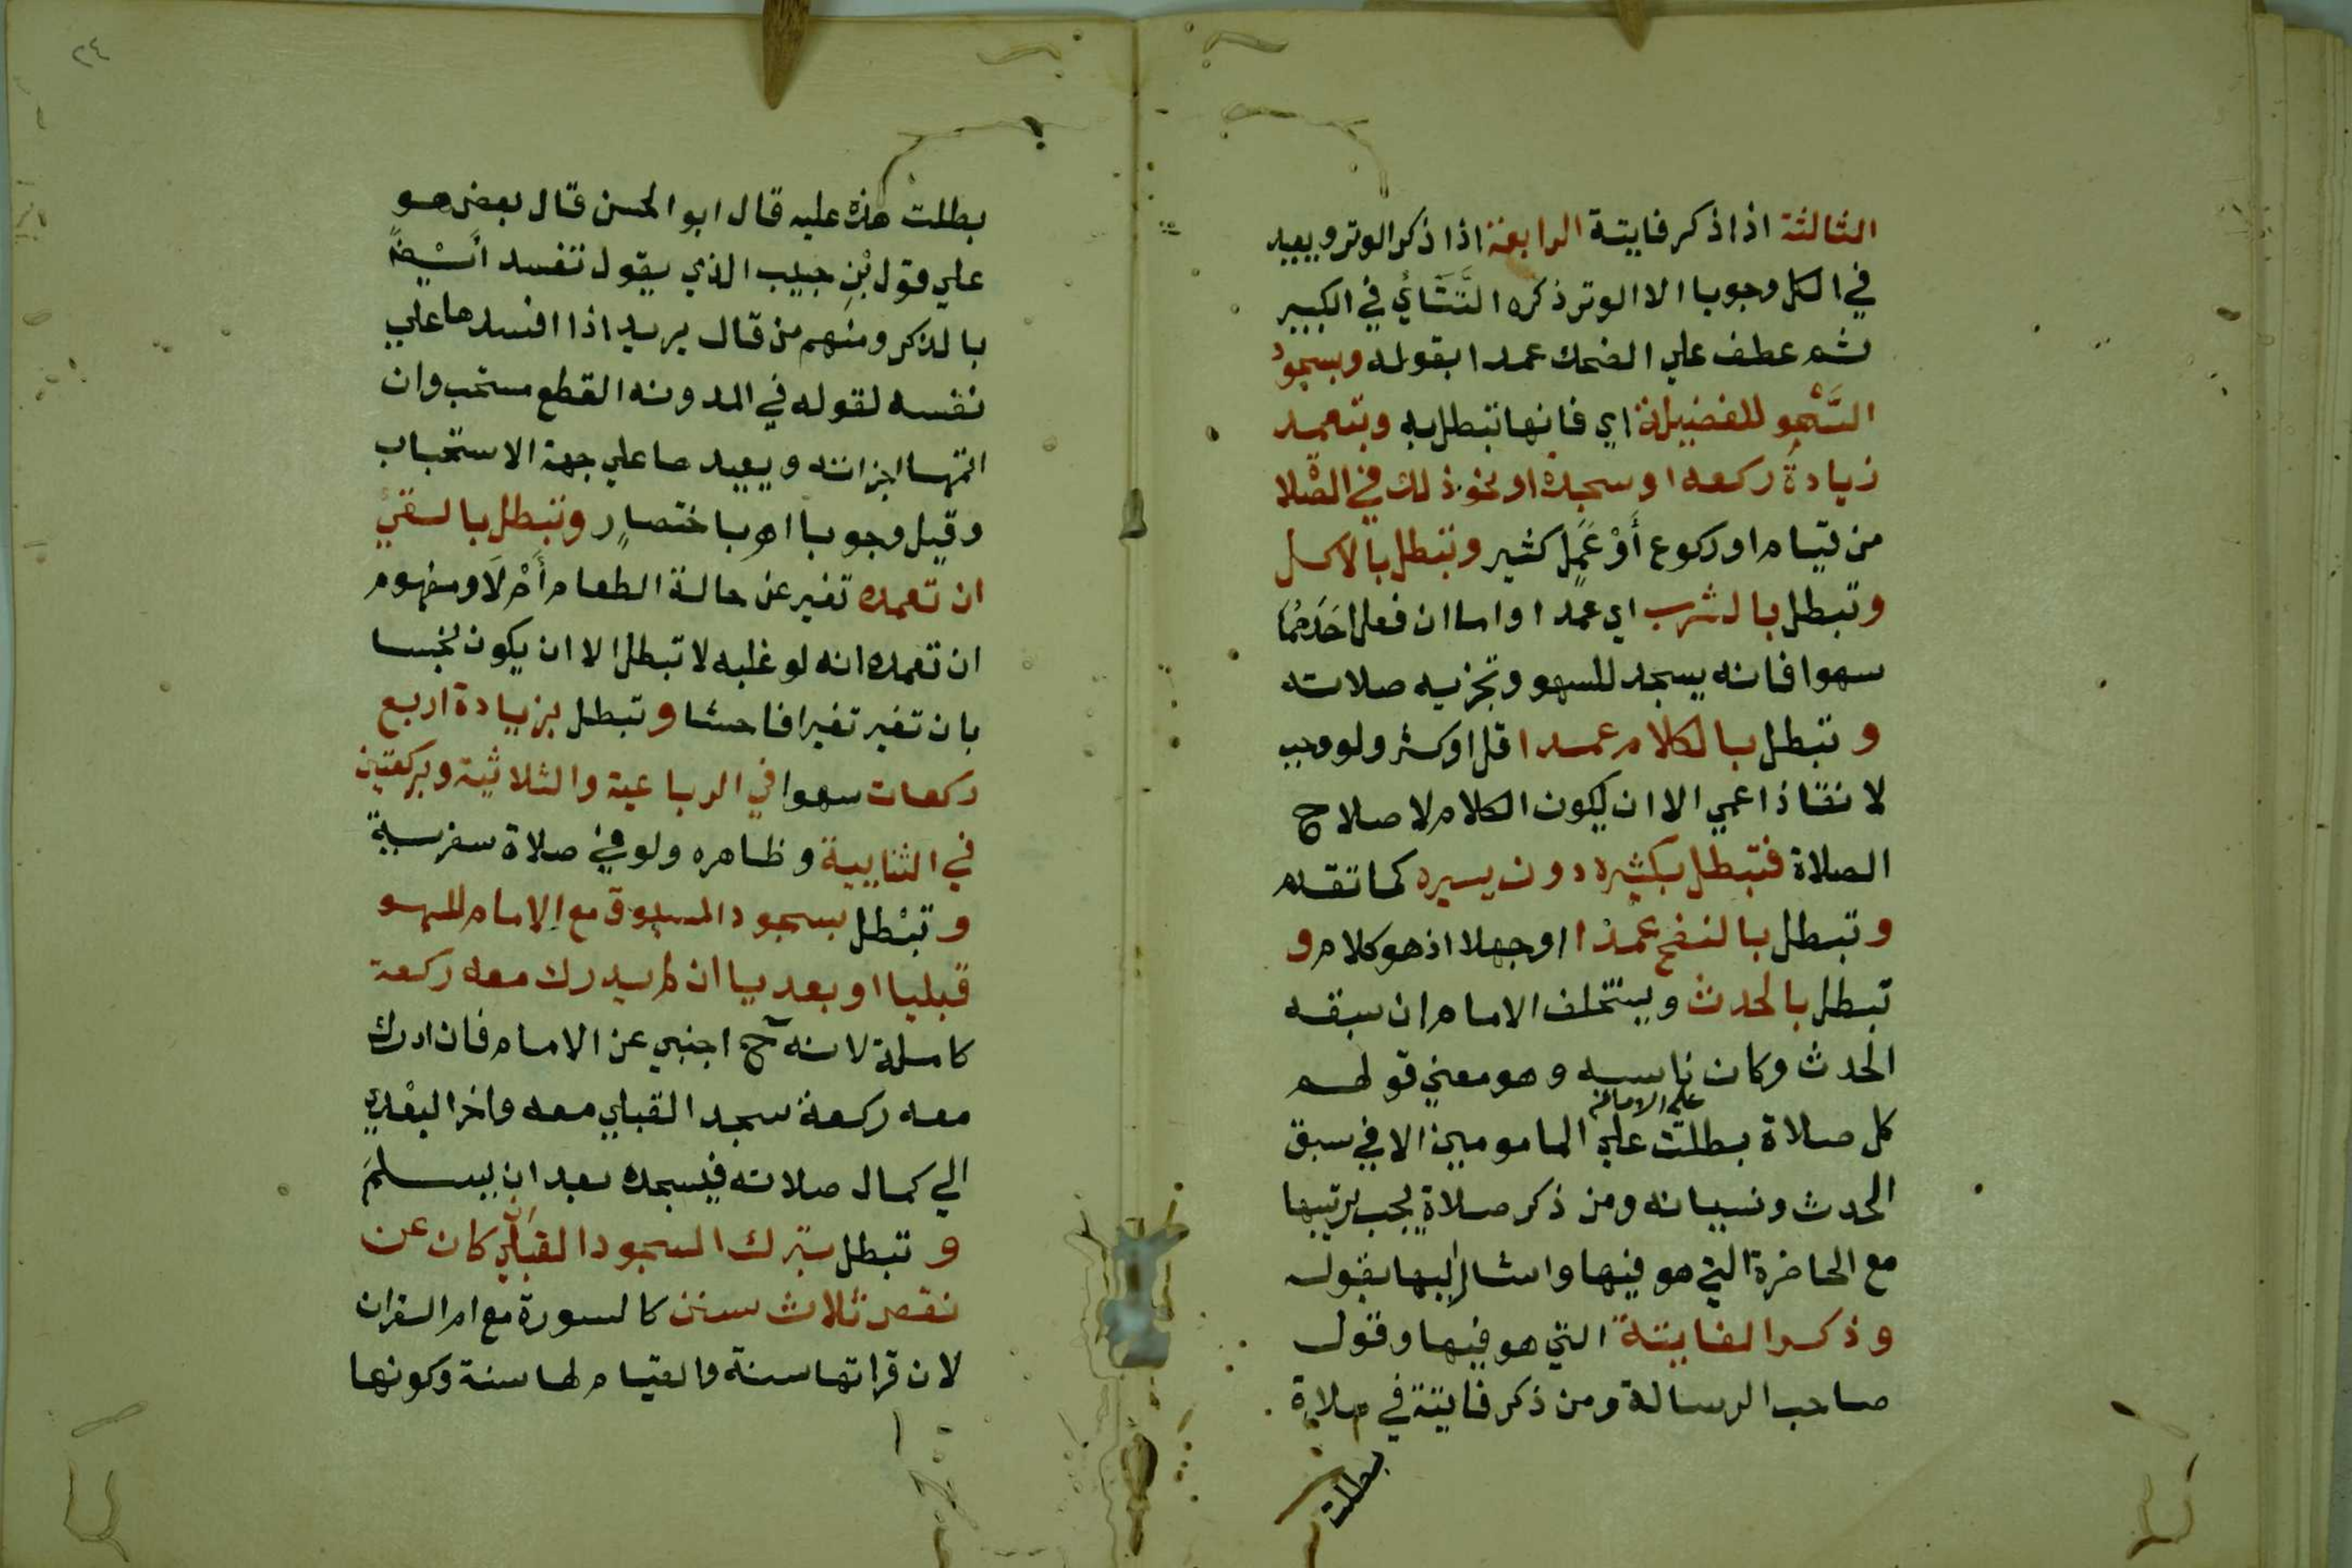 الثالثة اذا ذكر فايتة الرابعة اذا ذكر الوتر ويعيد
في الكل وجوبا الا الوتر ذكره التَّتَائي في الكبير
ثم عطف علي الضحك عمدا بقوله وبسجود
السَّهْو للفضيلة اي فانها تبطل به وبتعمد
زيادة ركعه او سجدة او نحو ذلك في الصلا
من قيام او ركوع أَوْ عَمَل كثير وتبطل بالاكل
وتبطل بالشرب اي عمدا واما ان فعل احَدَهُمَا
سهوا فانه يسجد للسهو وتجزيه صلاته
وتبطل بالكلام عمدا قل او كثر ولو وجب
لانقاذ اعمي الا ان يكون الكلام لاصلاح
الصلاة فتبطل بكثيره دون يسيره كما تقدم
وتبطل بالنفخ عمدا او جهلا اذ هو كلام و
تبطل بالحدث ويستخلف الامام ان سبقه
الحدث وكان ناسيه وهو معني قولهم
علي الامام
كل صلاة بطلت علي المامومين الا في سبق
الحدث ونسيانه ومن ذكر صلاة يجب ترتيبها
مع الحاضرة التي هو فيها واشار اليها بقوله
وذكر الفايتة التي هو فيها وقول
صاحب الرسالة ومن ذكر فايتة في صلاة
بطلت
٢٤
بطلت هذه عليه قال ابو الحسن قال بعض هو
علي قول بْنِ حبيب الذي يقول تفسد ايْضًا
بالذكر ومنهم من قال يريد اذا افسدها علي
نفسه لقوله في المدونه القطع مستحب وان
اتمها اجزاته ويعيدها علي جهة الاستحباب
وقيل وجوبا اهـ باختصار وتبطل بالقيْ
ان تعمده تغير عن حالة الطعام أَمْ لَا ومفهوم
ان تعمده انه لو غلبه لا تبطل الا ان يكون نجسا
بان تغير تغيرا فاحشا وتبطل بزيادة اربع
ركعات سهوا في الرباعية والثلاثية وبركعتين
في الثنايية وظاهره ولو في صلاة سفرية
وتبْطل بسجود المسبوق مع الامام للسهو
قبليا او بعديا ان لم يدرك معه ركعة
كاملة لانه ح اجنبي عن الامام فان ادرك
معه ركعة سجد القبلي معه واخر البعْدي
الي كمال صلاته فيسجده بعد ان يسلمَ
وتبطل بترك السجود القبلي كان عن
نقص ثلاث سنن كالسورة مع ام القران
لان قراتها سنة والقيام لها سنة وكونها